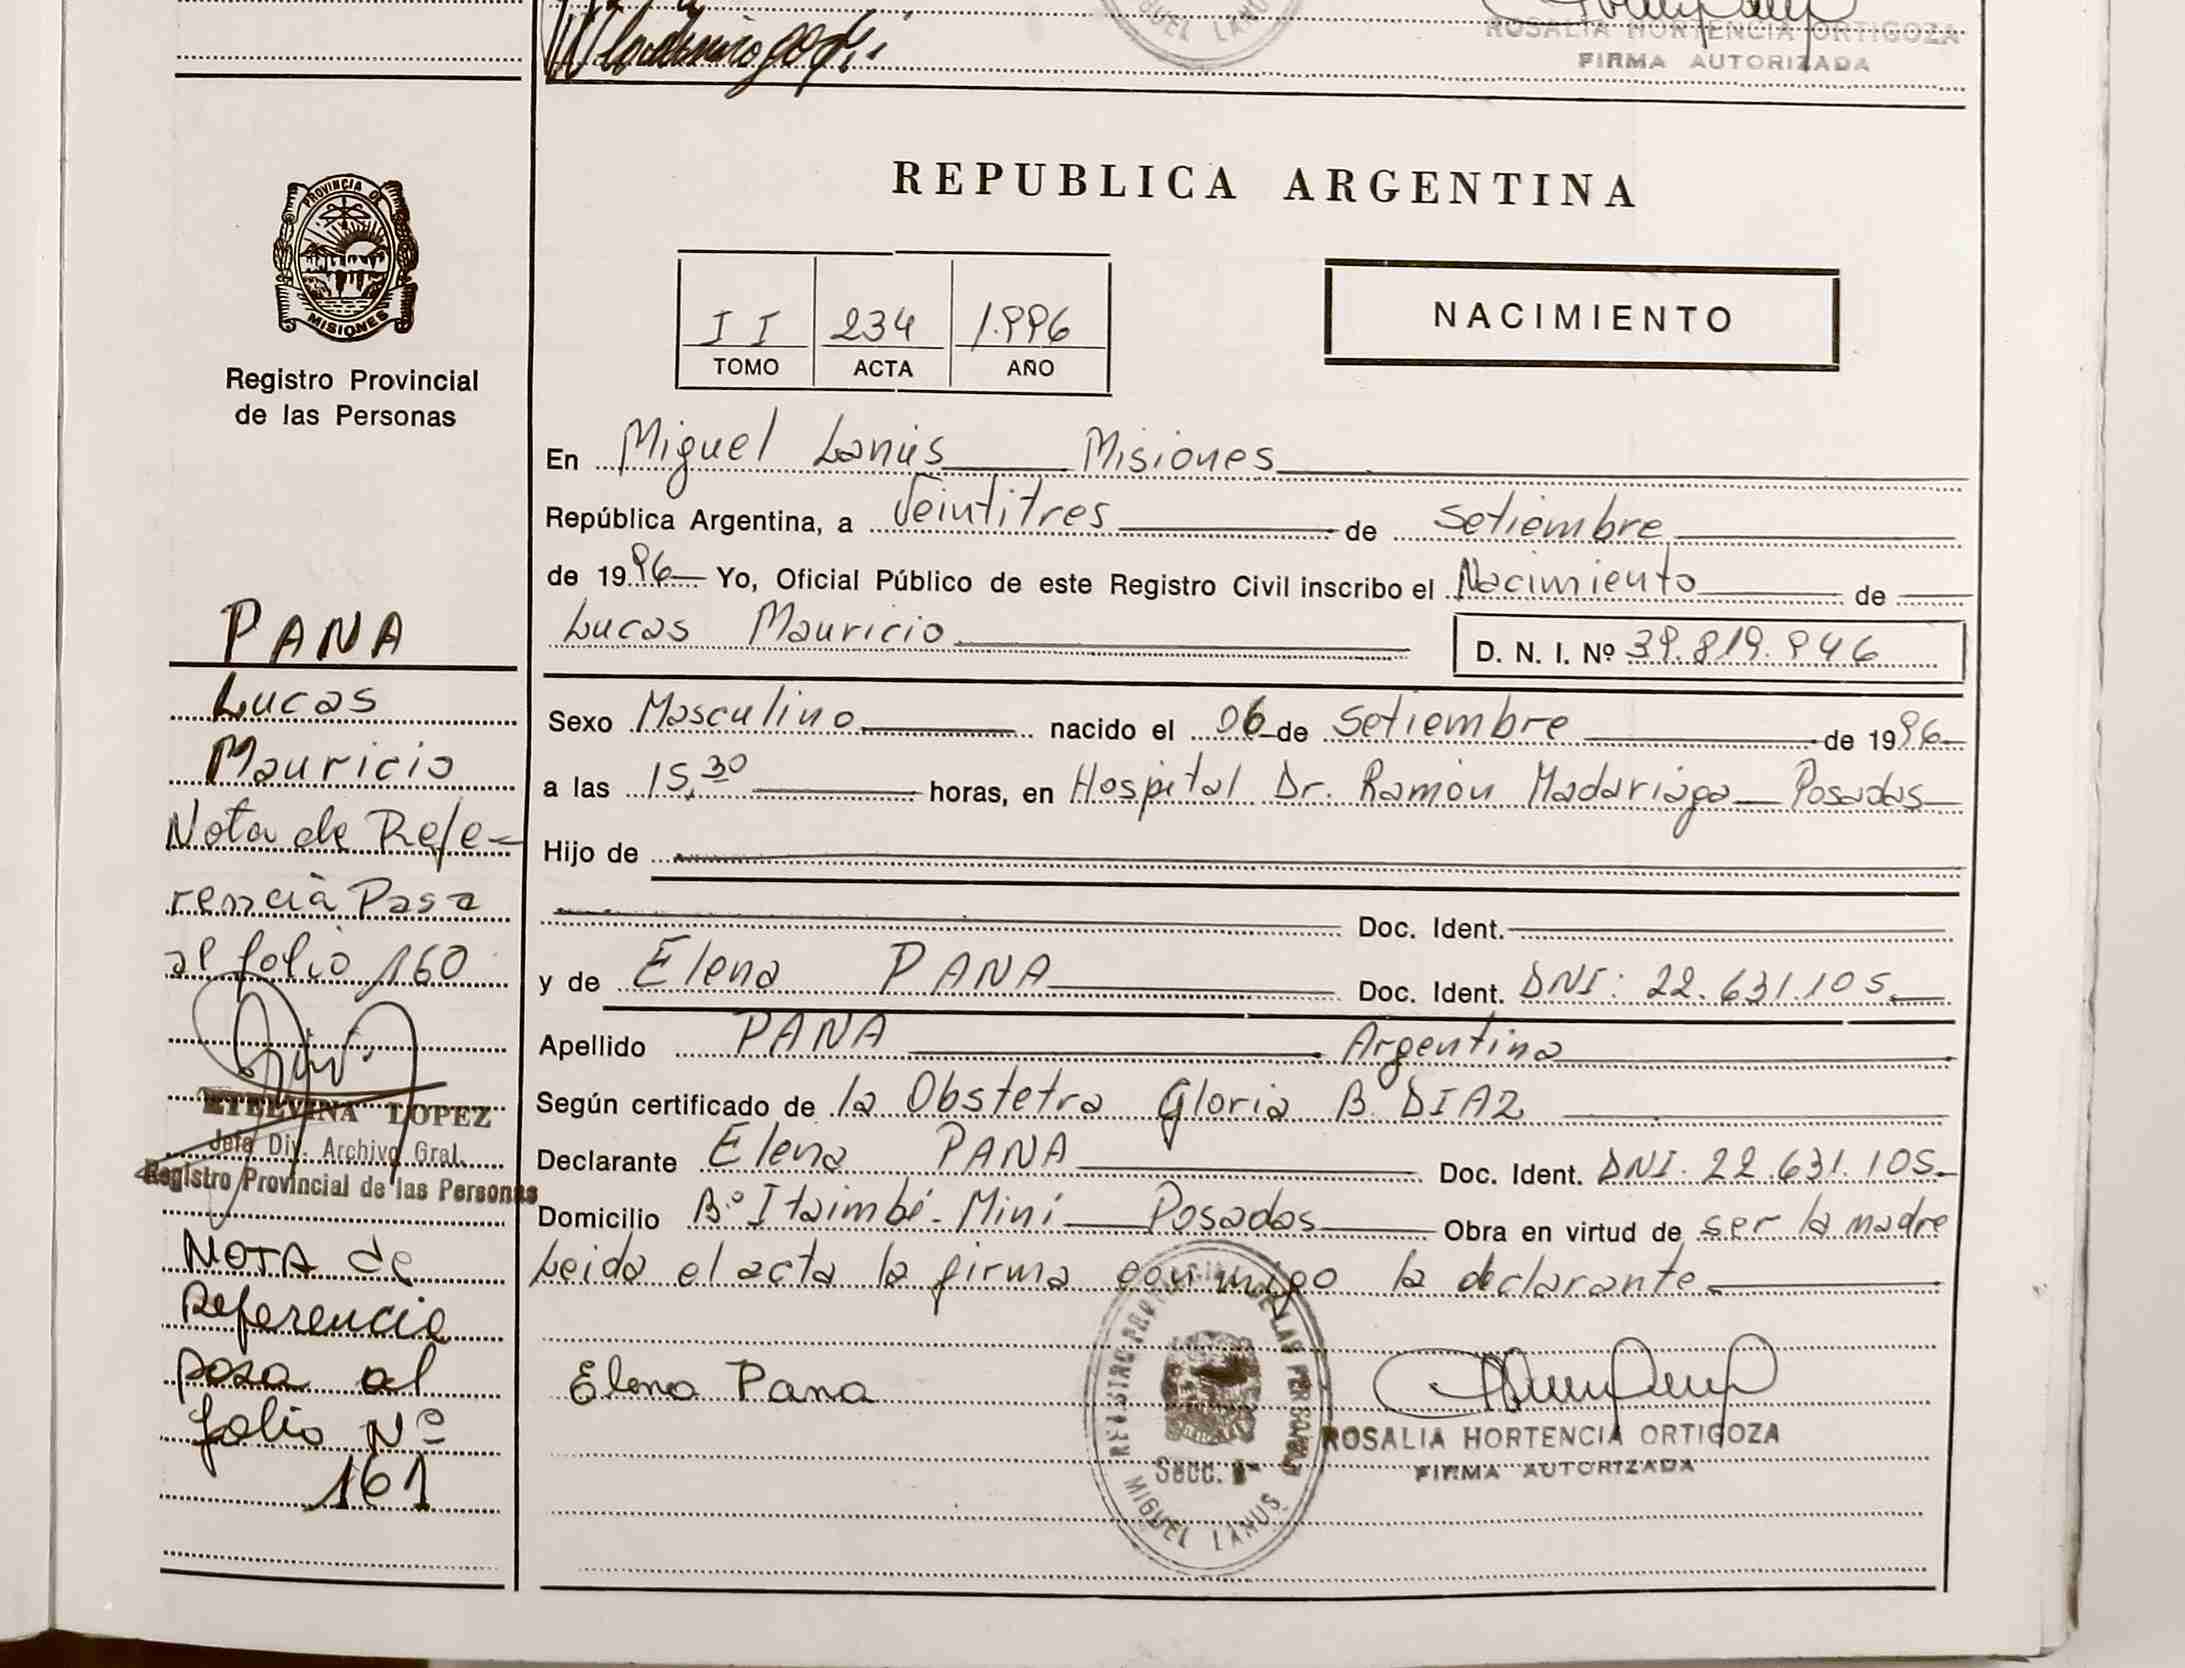 ROSALIA HORTENCIA ORTIGOZA
FIRMA AUTORIZADA
MIGUEL LANUS
PROVINCIA DE
MISIONES
Registro Provincial
de las Personas
REPUBLICA ARGENTINA
II 234 1.996
TOMO ACTA AÑO
NACIMIENTO
En Miguel Lanús Misiones
República Argentina, a Veintitres de setiembre
de 1996 Yo, Oficial Público de este Registro Civil inscribo el Nacimiento de
Lucas Mauricio D. N. I. Nº 39.819.946
Sexo Masculino nacido el 06 de Setiembre de 1996
a las 15,30 horas, en Hospital Dr. Ramón Madariaga Posadas
Hijo de
Doc. Ident.
y de Elena PANA Doc. Ident. DNI: 22.631.105.
Apellido PANA Argentina
Según certificado de la Obstetra Gloria B. DIAZ
Declarante Elena PANA Doc. Ident. DNI. 22.631.105.
Domicilio B.º Itaimbé-Miní Posadas Obra en virtud de ser la madre
Leida el acta la firma conmigo la declarante
Elena Pana
REGISTRO PROVINCIAL DE LAS PERSONAS
Secc.
MIGUEL LANUS
ROSALIA HORTENCIA ORTIGOZA
FIRMA AUTORIZADA
PANA
Lucas
Mauricio
Nota de Refe-
rencia Pasa
al folio 160
ETELVINA LOPEZ
Jefa Div. Archivo Gral.
Registro Provincial de las Personas
NOTA de
Referencia
pasa al
folio Nº
161